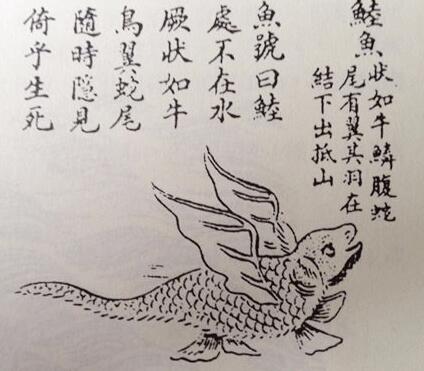 鯥魚狀如牛鱗腹蛇
尾有翼其羽在
𩨭下出抵山
魚號曰鯥
處不在水
厥狀如牛
鳥翼蛇尾
隨時隱見
倚乎生死